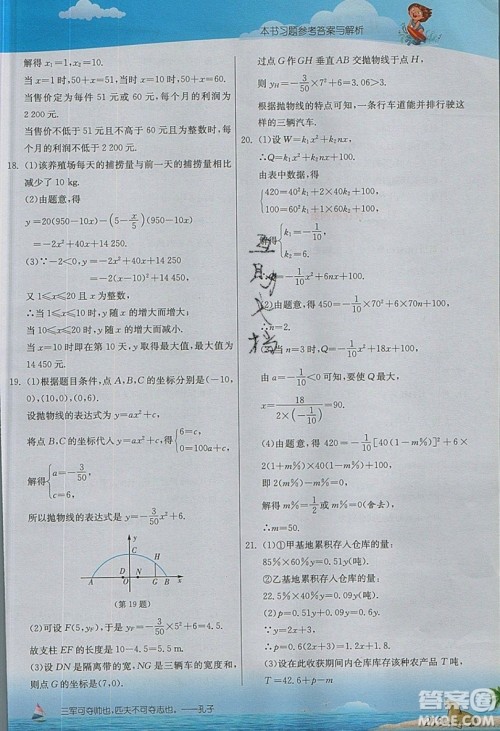 本书习题参考答案与解析
解得 x₁=1, x₂=10.
当 x=1 时,50+x=51,当 x=10 时,50+x=60.
当售价定为每件 51 元或 60 元时,每个月的利润为
2 200 元.
当售价不低于 51 元且不高于 60 元且为整数时,每个
月的利润不低于 2 200 元.
18. (1)该养殖场每天的捕捞量与前一天的捕捞量相比减
少了 10 kg.
(2)由题意,得
y=20(950-10x)-(5-x/5)(950-10x)
=-2x²+40x+14 250.
(3)∵-2<0,y=-2x²+40x+14 250
=-2(x-10)²+14 450,
又 1≤x≤20 且 x 为整数,
∴当 1≤x≤10 时,y 随 x 的增大而增大;
当 10≤x≤20 时,y 随 x 的增大而减小.
当 x=10 时即在第 10 天,y 取得最大值,最大值为
14 450 元.
19. (1)根据题目条件,点 A,B,C 的坐标分别是(-10,
0),(10,0),(0,6).
设抛物线的表达式为 y=ax²+c,
将点 B,C 的坐标代入,得{6=c,
0=100a+c.
解得{a=-3/50,
c=6,
所以抛物线的表达式是 y=-3/50x²+6.
y
C
H
A
D
O
N
G
B
x
(第 19 题)
(2)可设 F(5,y_F),于是 y_F=-3/50×5²+6=4.5.
故支柱 EF 的长度是 10-4.5=5.5(米).
(3)设 DN 是隔离带的宽度,NG 是三辆车的宽度和,
则点 G 的坐标是(7,0).
过点 G 作 GH 垂直 AB 交抛物线于点 H,
则 y_H=-3/50×7²+6=3.06>3.
根据抛物线的特点可知,一条行车道能并排行驶这样
的三辆汽车.
20. (1)设 W=k₁x²+k₂nx,
∴Q=k₁x²+k₂nx+100.
由表中数据,得
{420=40²k₁+2×40k₂+100,
100=60²k₁+1×60k₂+100,
解得{k₁=-1/10,
k₂=6,
∴Q=-1/10x²+6nx+100.
(2)由题意,得 450=-1/10×70²+6×70n+100.
∴n=2.
(3)当 n=3 时,Q=-1/10x²+18x+100,
由 a=-1/10<0 可知,要使 Q 最大,
x=-18/(2×(-1/10))=90.
(4)由题意,得 420=-1/10[40(1-m%)]²+6×
2(1+m%)×40(1-m%)+100,
即 2(m%)²-m%=0,
解得 m%=1/2 或 m%=0(舍去),
∴m=50.
21. (1)①甲基地累积存入仓库的量:
85%×60%y=0.51y(吨).
②乙基地累积存入仓库的量:
22.5%×40%y=0.09y(吨).
(2)p=0.51y+0.09y=0.6y,
∵y=2x+3,
三军可夺帅也,匹夫不可夺志也。——孔子
答案圈
MXQE.COM